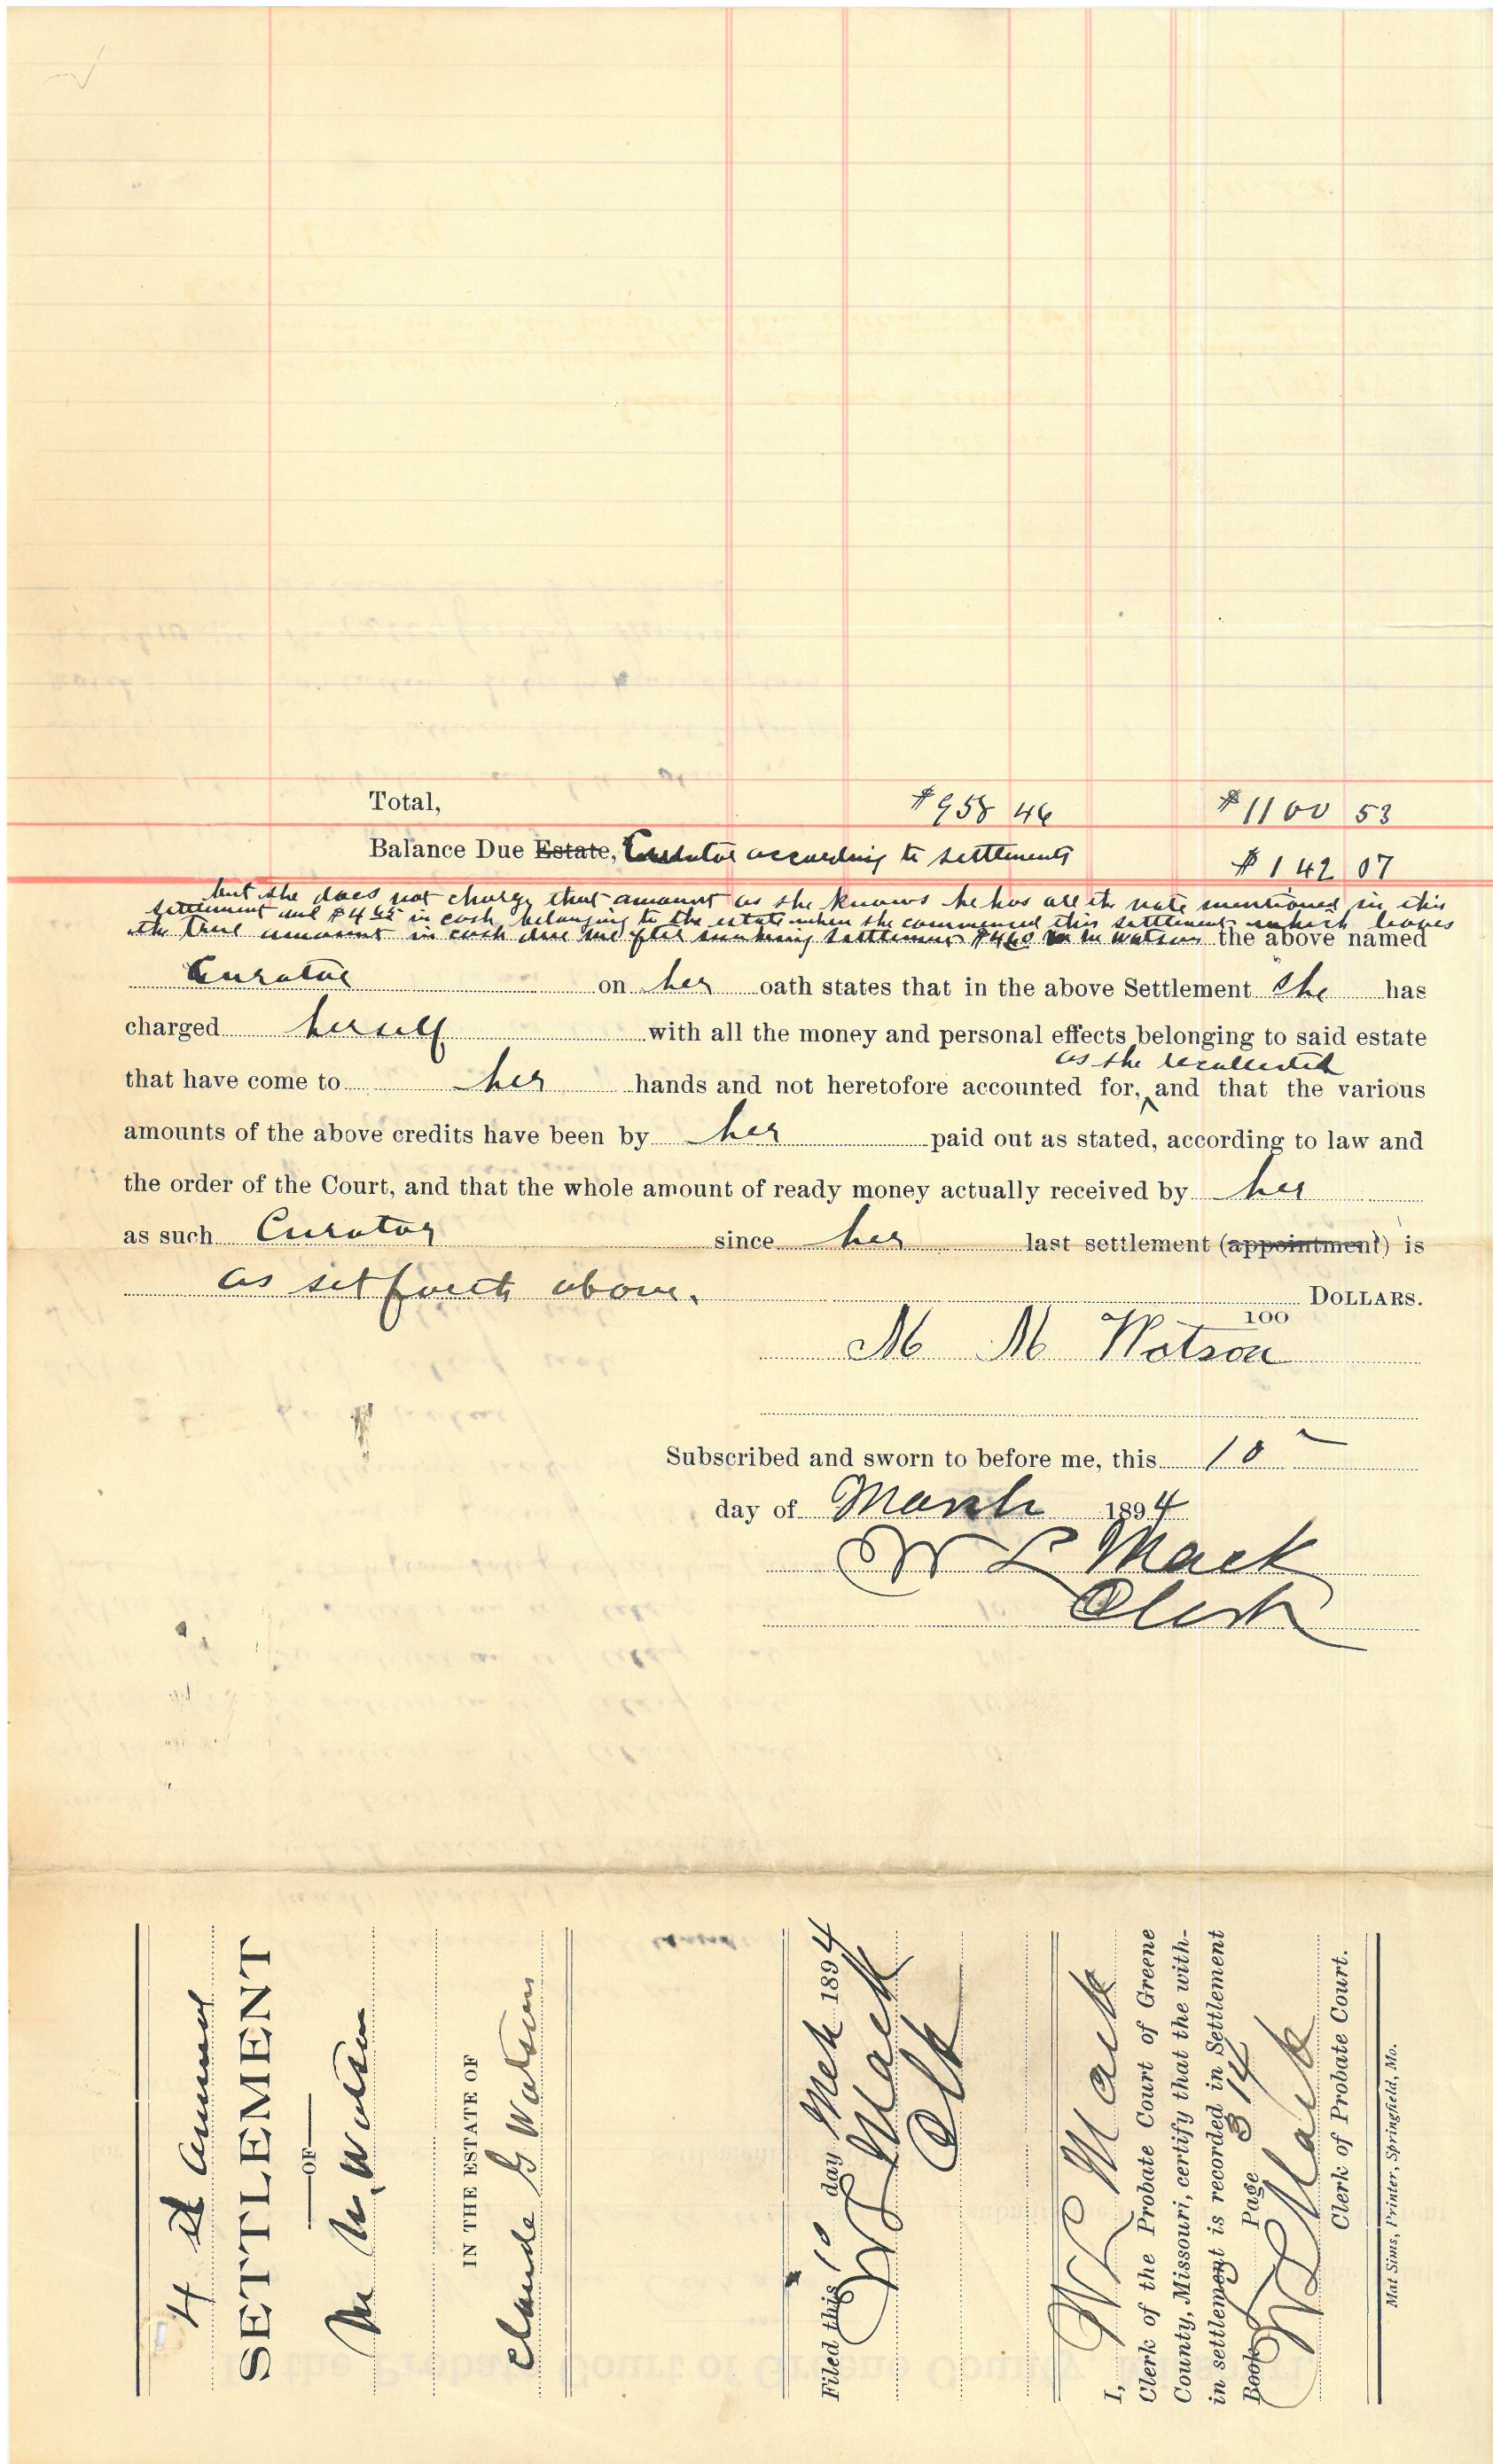 Total, $958 46 $1100 53
Balance Due Estate, Curator according to settlements $142 07
but she does not charge that amount as she knows he has all the note mentioned in this
settlement and in cash belonging to the estate when she commenced this settlement which leaves
the true amount in cash due me after making settlement M M Watson the above named
Curator on her oath states that in the above Settlement she has
charged herself with all the money and personal effects belonging to said estate
as she recollected
that have come to her hands and not heretofore accounted for, and that the various
amounts of the above credits have been by her paid out as stated, according to law and
the order of the Court, and that the whole amount of ready money actually received by her
as such Curator since her last settlement (appointment) is
as set forth above. DOLLARS.
100
M M Watson
Subscribed and sworn to before me, this 10
day of March 1894
W L Mack
Clerk
4th annual
SETTLEMENT
OF
M M. Watson
IN THE ESTATE OF
Claude G Watson
Filed this 10 day Mch 1894
W L Mack
Clk
I, W L Mack
Clerk of the Probate Court of Greene
County, Missouri, certify that the with-
in settlement is recorded in Settlement
Book Page 314
W L Mack
Clerk of Probate Court.
Mat Sims, Printer, Springfield, Mo.